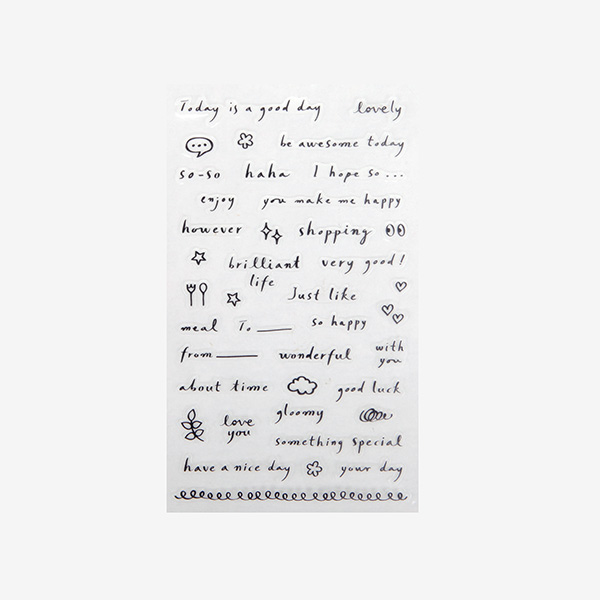 Today is a good day lovely
be awesome today
so-so haha I hope so...
enjoy you make me happy
however shopping
brilliant very good!
life
Just like
meal To ____ so happy
from ____ wonderful with
you
about time good luck
gloomy
love
you
something special
have a nice day your day